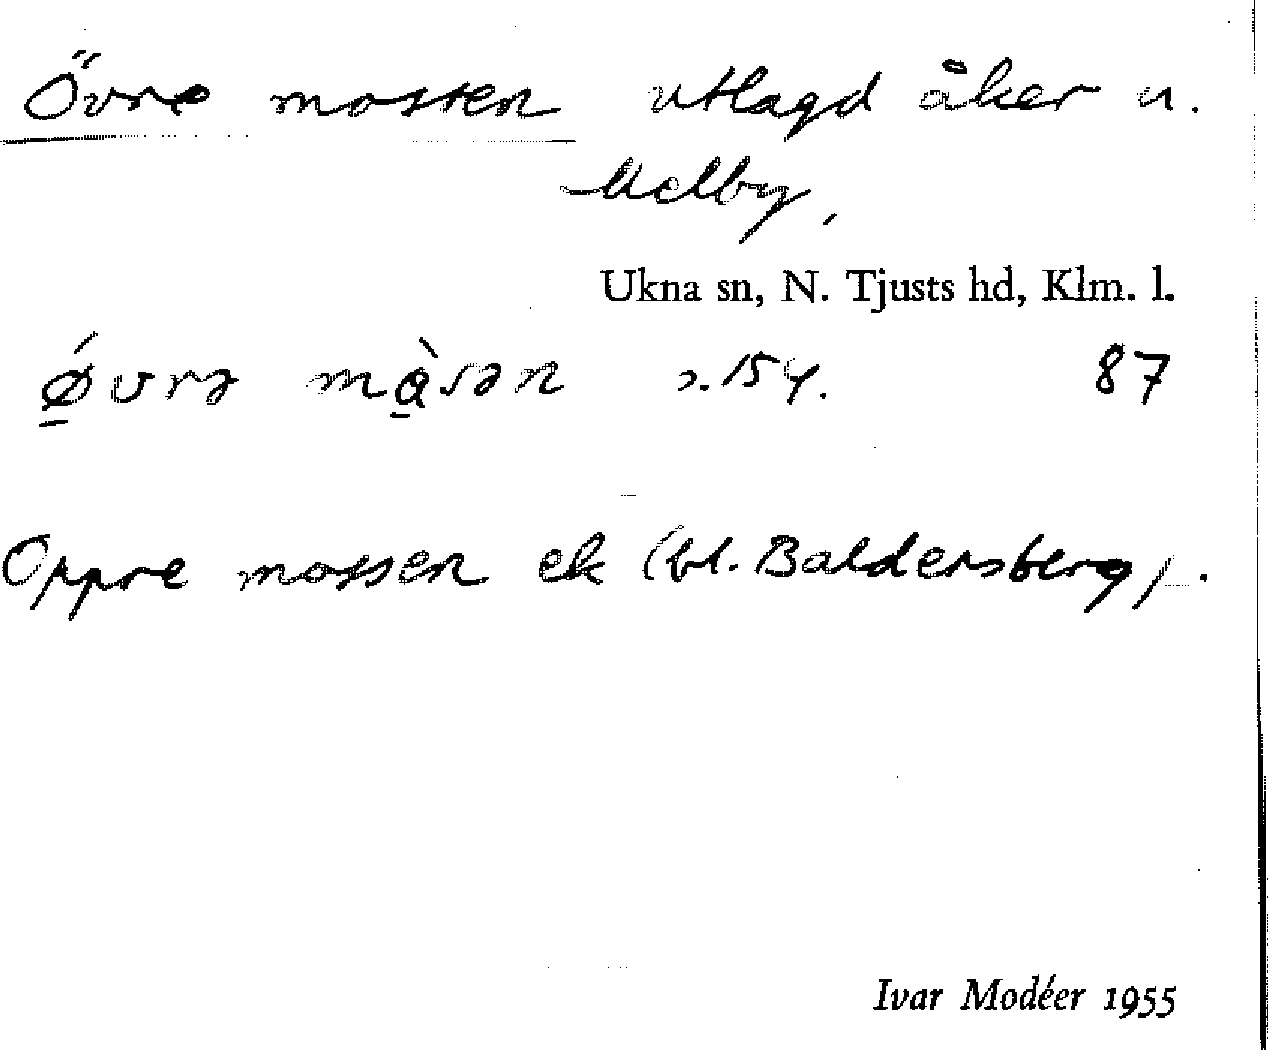 Övre mossen utlagd åker u.
Melby,
Ukna sn, N. Tjusts hd, Klm. l.
ǿvrə mɑ̀sən 154. 87
Oppre mossen ek (bl. Baldersberg).
Ivar Modéer 1955